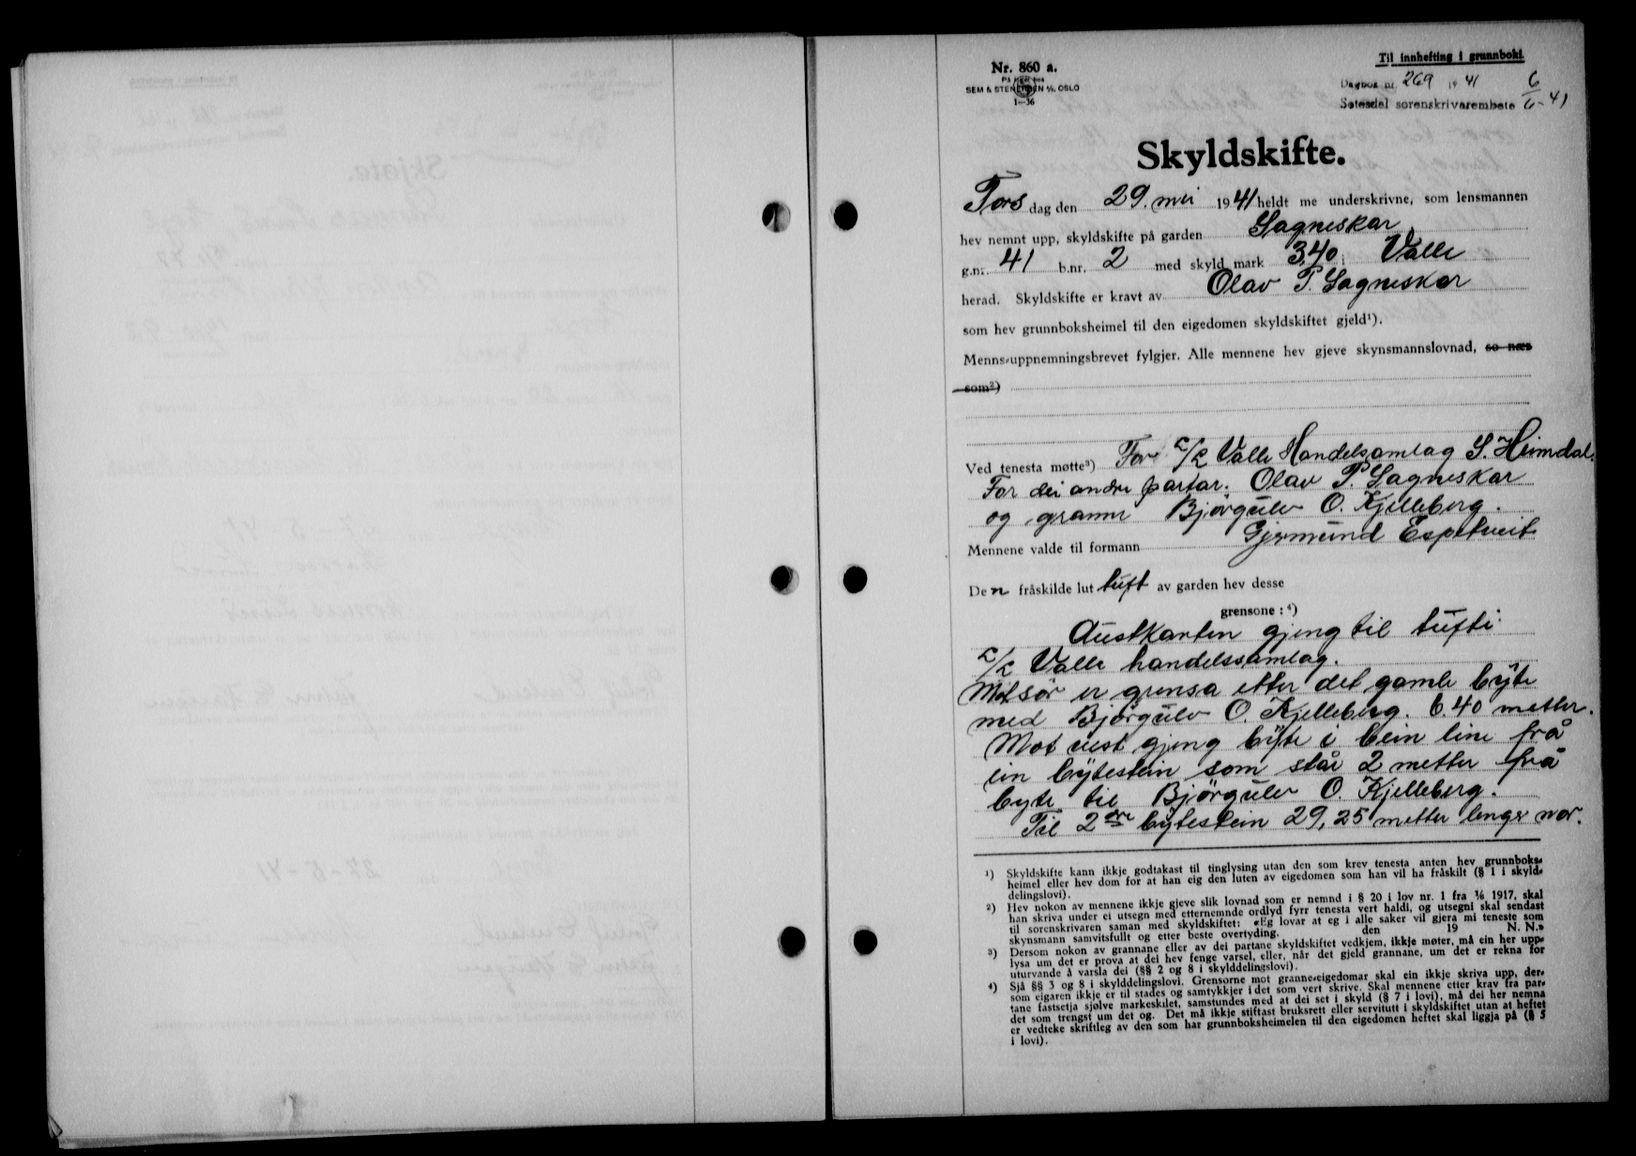 Til innhefting i grunnboki.
Nr. 860 a.
På lager hos
SEM & STENERSEN A/S, OSLO
1—36
Dagbok nr. 269 1941
Setesdal sorenskrivarembete 6/6-41
Skyldskifte.
Tors dag den 29. mai 1941 heldt me underskrivne, som lensmannen
hev nemnt upp, skyldskifte på garden Sagneskar
g.nr. 41 b.nr. 2 med skyld mark 3,40 i Valle
herad. Skyldskifte er kravt av Olav P. Sagneskar
som hev grunnboksheimel til den eigedomen skyldskiftet gjeld¹).
Menns-uppnemningsbrevet fylgjer. Alle mennene hev gjeve skynsmannslovnad, so nær
som²)
Ved tenesta møtte³) For L/L Valle Handelsamlag S. Heimdal.
For dei andre partar: Olav P. Sagneskar
og granne Bjørgulv O. Kjelleberg.
Mennene valde til formann Gjermund Espetveit
Den fråskilde lut tuft av garden hev desse
grensone: ⁴)
Austkanten gjeng til tufti
L/L Valle handelssamlag.
Mot sør er grensa etter det gamle byte
med Bjørgulv O. Kjelleberg. 6.40 metter.
Mot vest gjeng byte i bein line frå
ein bytestein som står 2 metter frå
byte til Bjørgulv O. Kjelleberg.
Til 2dre bytestein 29,25 metter lenger nor.
¹) Skyldskifte kann ikkje godtakast til tinglysing utan den som krev tenesta anten hev grunnboks-
heimel eller hev dom for at han eig den luten av eigedomen som han vil ha fråskilt (§ 1 i skyld-
delingslovi).
²) Hev nokon av mennene ikkje gjeve slik lovnad som er nemnd i § 20 i lov nr. 1 fra 1/6 1917, skal
han skriva under ei utsegn med etternemnde ordlyd fyrr tenesta vert haldi, og utsegni skal sendast
til sorenskrivaren saman med skyldskiftet: «Eg lovar at eg i alle saker vil gjera mi teneste som
skynsmann samvitsfullt og etter beste overtyding. den 19 N. N.»
³) Dersom nokon av grannane eller av dei partane skyldskiftet vedkjem, ikkje møter, må ein her upp-
lysa um det er prova at dei hev fenge varsel, eller, når det gjeld grannane, um det er rekna for
uturvande å varsla dei (§§ 2 og 8 i skylddelingslovi).
⁴) Sjå §§ 3 og 8 i skylddelingslovi. Grensorne mot granne-eigedomar skal ein ikkje skriva upp, der-
som eigaren ikkje er til stades og samtykkjer i det som vert skrive. Skal mennene etter krav fra par-
tane fastsetja sjølve markeskilet, samstundes med at dei set i skyld (§ 7 i lovi), må dei her nemna
det som trengst um det og. Det må ikkje stiftast bruksrett eller servitutt i skyldskiftet utan at heftet
er vedteke skriftleg av den som har grunnboksheimelen til den eigedomen heftet skal liggja på (§ 5
i lovi).